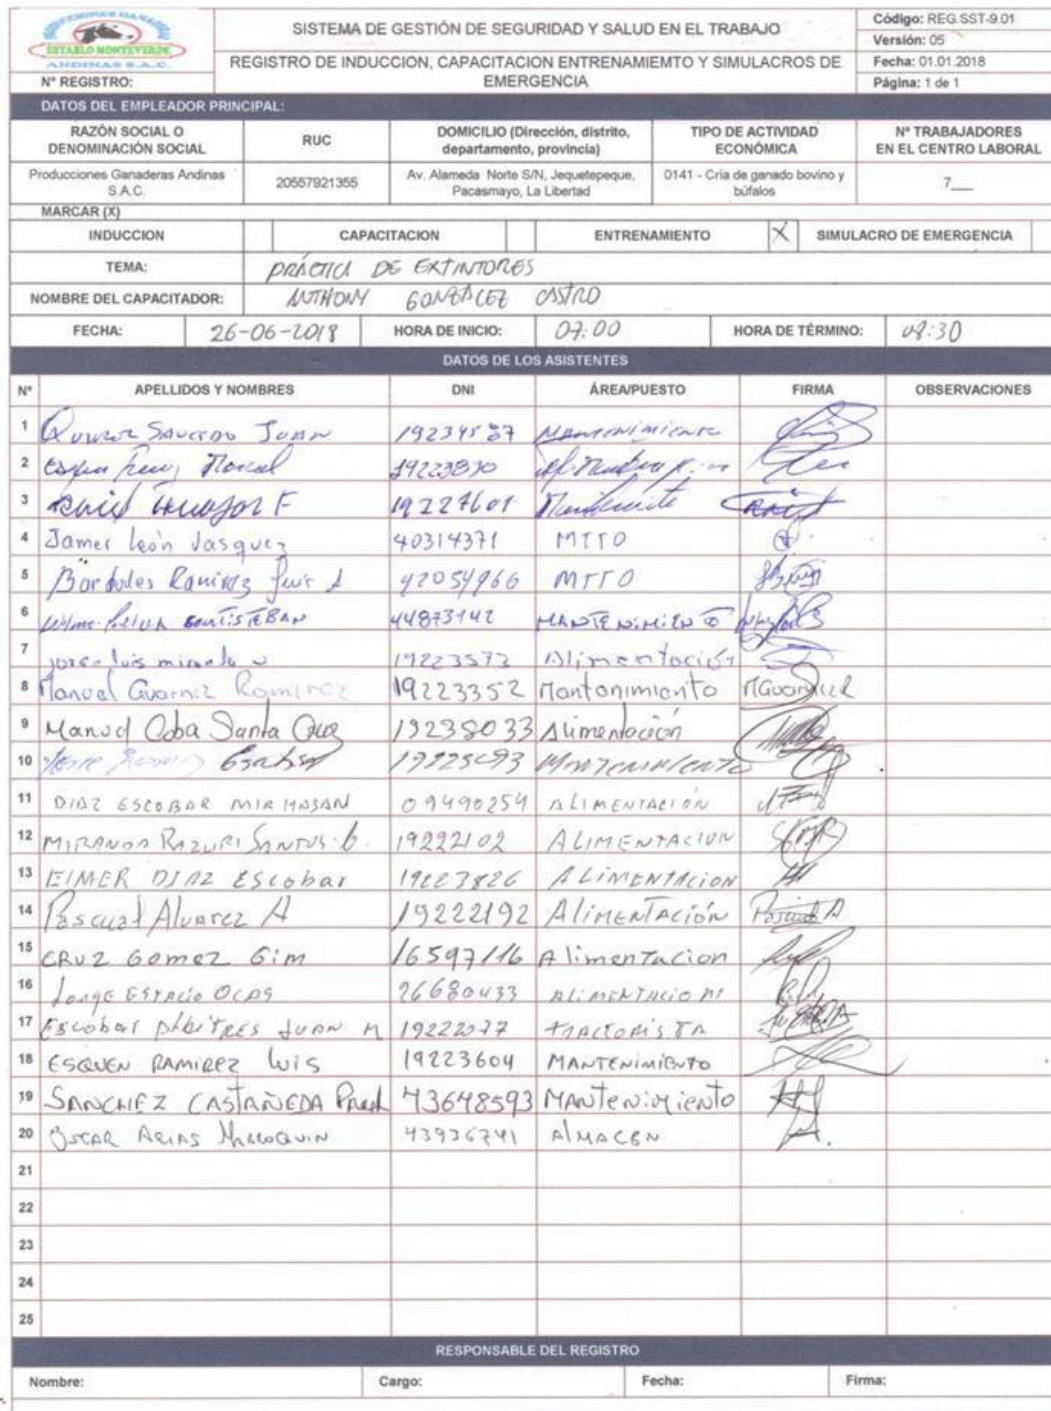 ESTABLO MONTEVERDE
ANDINAS S.A.C.
Nº REGISTRO:
SISTEMA DE GESTIÓN DE SEGURIDAD Y SALUD EN EL TRABAJO
REGISTRO DE INDUCCION, CAPACITACION ENTRENAMIEMTO Y SIMULACROS DE
EMERGENCIA
Código: REG.SST-9.01
Versión: 05
Fecha: 01.01.2018
Página: 1 de 1
DATOS DEL EMPLEADOR PRINCIPAL:
RAZÓN SOCIAL O DENOMINACIÓN SOCIAL RUC DOMICILIO (Dirección, distrito, departamento, provincia) TIPO DE ACTIVIDAD ECONÓMICA Nº TRABAJADORES EN EL CENTRO LABORAL
Producciones Ganaderas Andinas S.A.C. 20557921355 Av. Alameda Norte S/N, Jequetepeque, Pacasmayo, La Libertad 0141 - Cria de ganado bovino y búfalos 7__
MARCAR (X)
INDUCCION CAPACITACION ENTRENAMIENTO X SIMULACRO DE EMERGENCIA
TEMA: PRÁCTICA DE EXTINTORES
NOMBRE DEL CAPACITADOR: ANTHONY GONZALEZ CASTRO
FECHA: 26-06-2018 HORA DE INICIO: 07:00 HORA DE TÉRMINO: 08:30
DATOS DE LOS ASISTENTES
Nº APELLIDOS Y NOMBRES DNI ÁREA/PUESTO FIRMA OBSERVACIONES
1 Juan Mantenimiento
2 19223830
3 19227601
4 Jamer León Vasquez 40314371 MTTO
5 Ramirez Luis A 42054966 MTTO
6 44873142 MANTENIMIENTO
7 Jorge Luis miranda 19223573 Alimentación
8 Manuel Guarniz Ramirez 19223352 Mantonimionto
9 Manuel Coba Santa Cruz 19238033 Alimentación
10 Mantenimiento
11 DIAZ ESCOBAR 09490254 ALIMENTACIÓN
12 MIRANDA RAZURI SANTOS 19222102 ALIMENTACION
13 ElMER DIAZ EScobar 19223826 ALIMENTACION
14 Pascual Alvarez A 19222192 AlimENTACIÓN
15 CRUZ Gomez Gim 16597116 AlimenTacion
16 Jorge ESTACIO OCAS 26680433
17 EScobar JUAN M TRACTORISTA
18 ESQUEN RAMIREZ LUIS 19223604 MANTENIMIENTO
19 SANCHEZ CASTAÑEDA 43648593 MANTenimiento
20 OSCAR ARIAS 43936741 AlMACEN
21
22
23
24
25
RESPONSABLE DEL REGISTRO
Nombre: Cargo: Fecha: Firma: